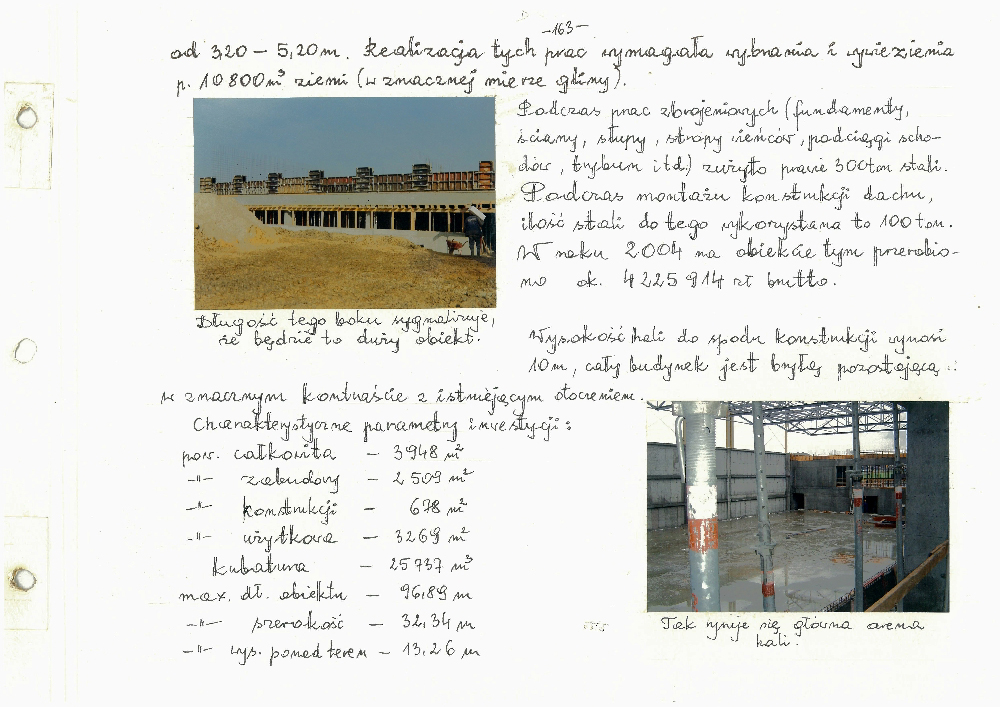 -163-
od 3,20 - 5,20 m. Realizacja tych prac wymagała wybrania i wywiezienia
p. 10 800 m³ ziemi (w znacznej mierze gliny).
Podczas prac zbrojeniowych (fundamenty,
ściany, słupy, stropy wieńców, podciągi scho-
dów, trybun itd.) zużyto prawie 300 ton stali.
Podczas montażu konstrukcji dachu,
ilość stali do tego wykorzystana to 100 ton.
W roku 2004 na obiekcie tym przerobio-
no ok. 4 225 914 zł brutto.
Długość tego boku sygnalizuje,
że będzie to duży obiekt.
Wysokość hali do spodu konstrukcji wynosi
10 m, cały budynek jest bryłą pozostającą
w znacznym kontraście z istniejącym otoczeniem.
Charakterystyczne parametry inwestycji:
pow. całkowita - 3948 m²
-"- zabudowy - 2509 m²
-"- konstrukcji - 678 m²
-"- użytkowa - 3269 m²
Kubatura - 25737 m³
max. dł. obiektu - 96,89 m
-"- szerokość - 32,34 m
-"- wys. ponad teren - 13,26 m
Tak rysuje się główna arena
hali.